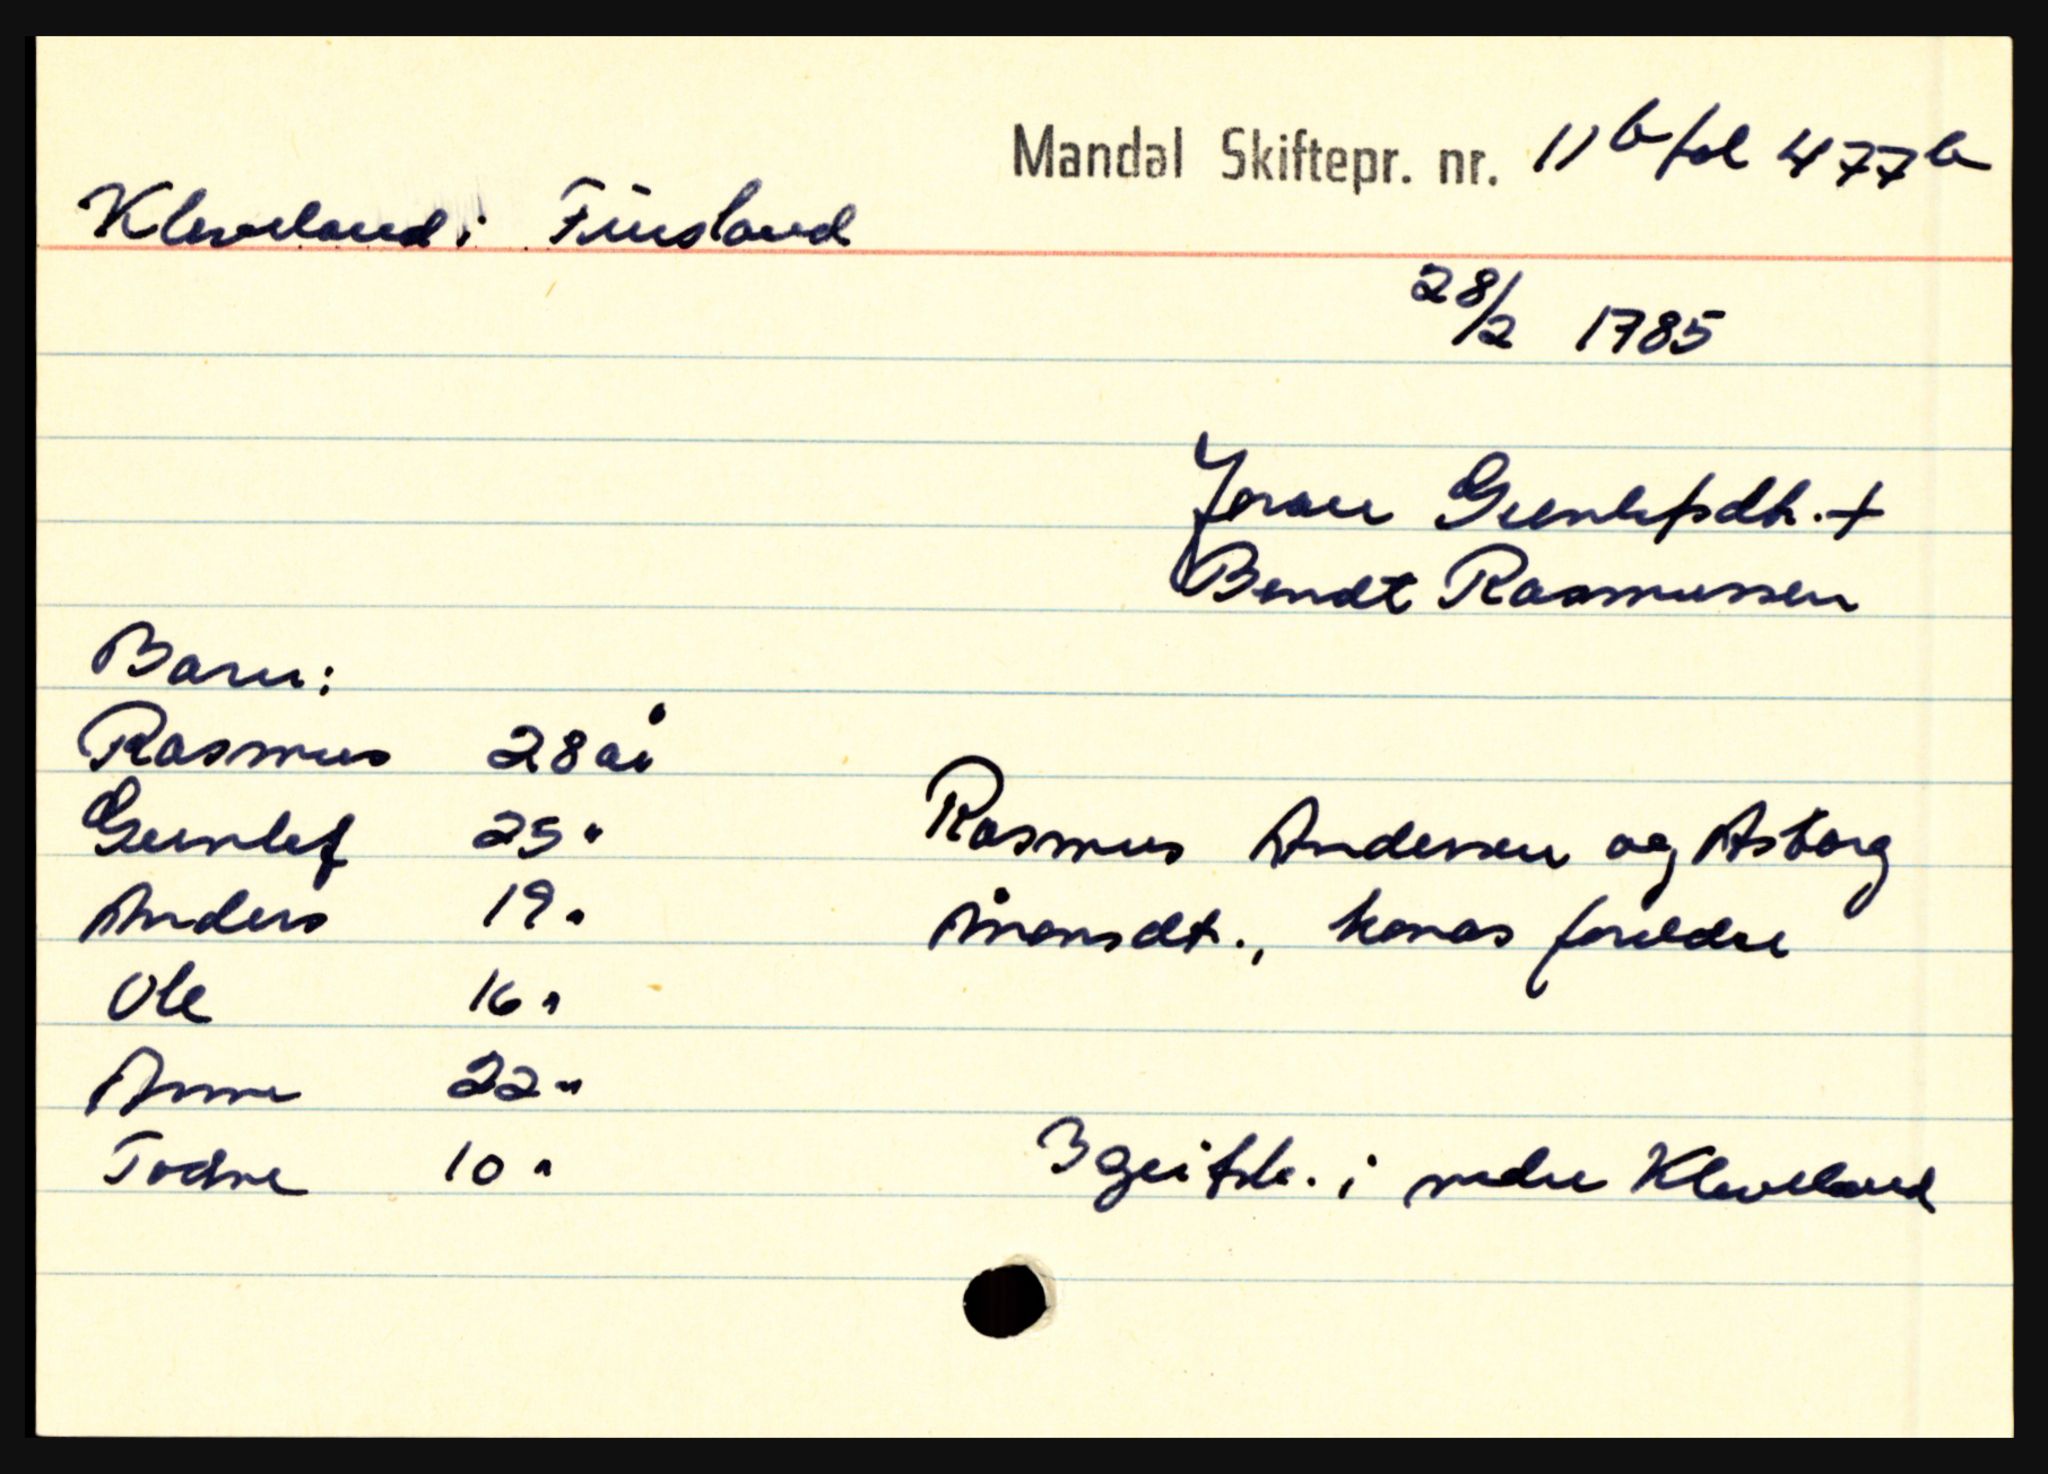 Mandal Skiftepr. nr. 11b fol 477b
Kleveland i Finsland
28/2 1785
Joran Gunlefsdtr. +
Bendt Rasmussen
Barn:
Rasmus 28 år
Gunlef 25 "
Anders 19 "
Ole 16 "
Anne 22 "
Todne 10 "
Rasmus Andersen og Asborg
Ånonsdt., konas foreldre
3 geitsk. i nedre Kleveland